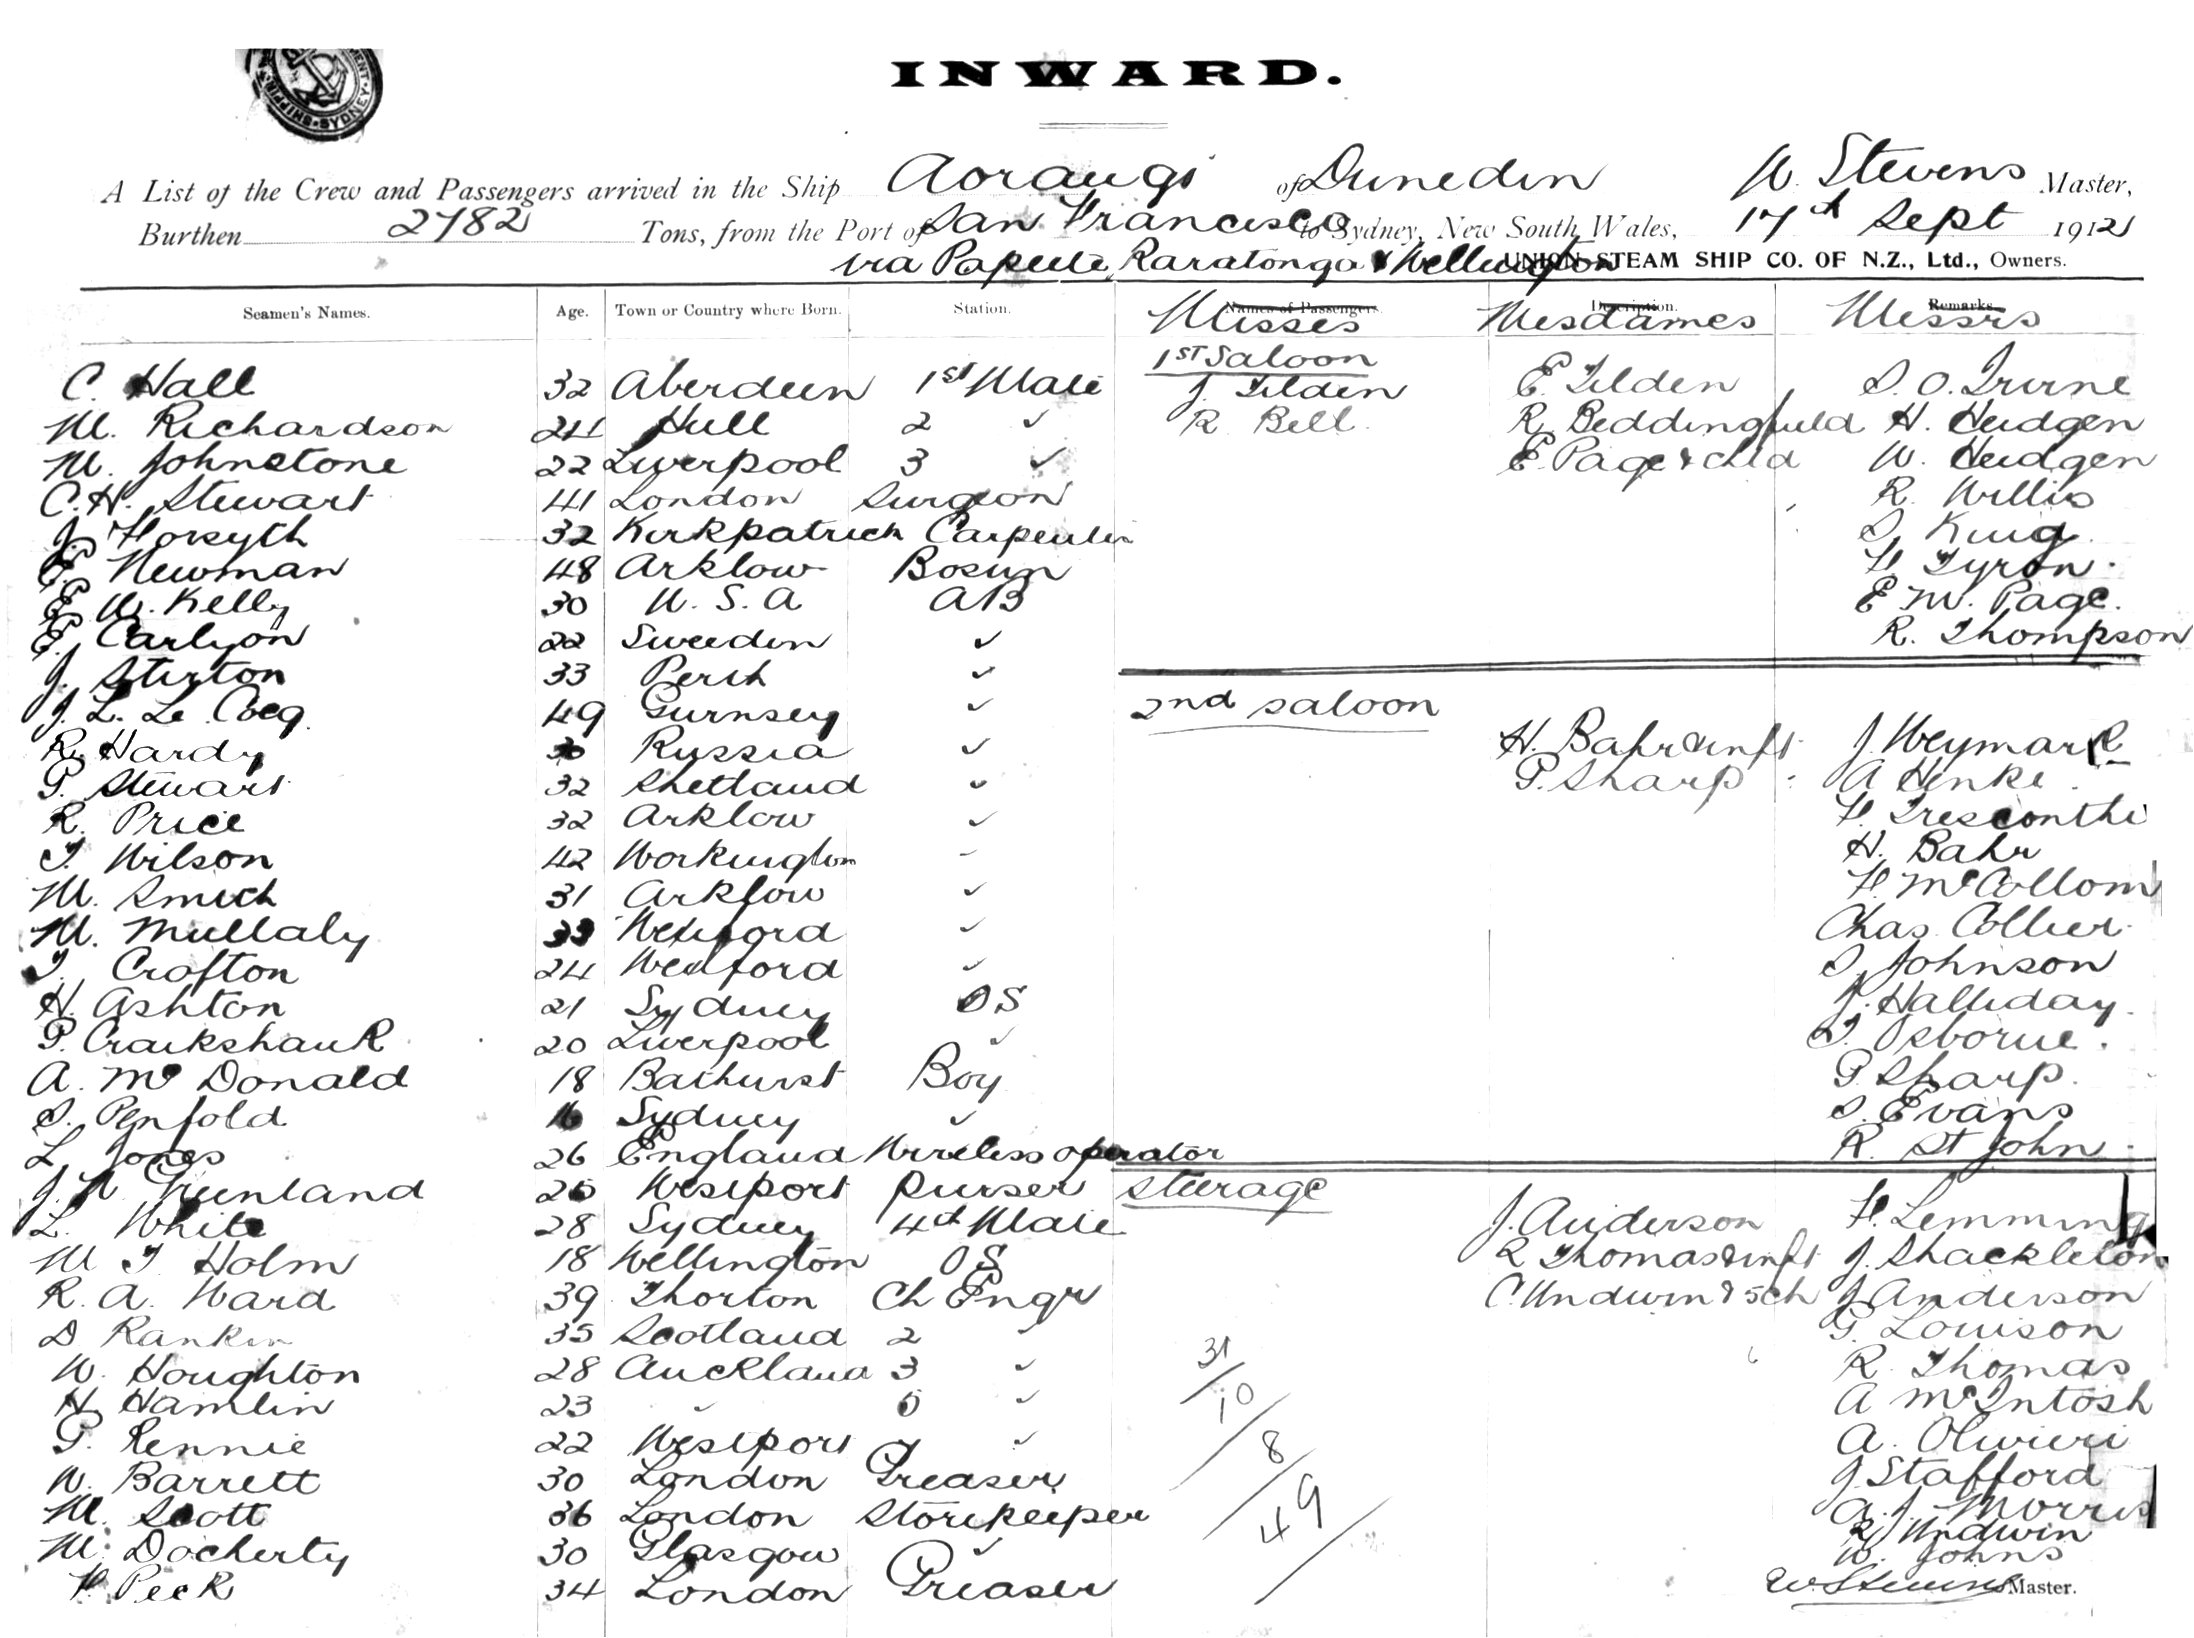 SHIPPING SYDNEY
INWARD.
A List of the Crew and Passengers arrived in the Ship Aorangi of Dunedin W. Stevens Master,
Burthen 2782 Tons, from the Port of San Francisco to Sydney, New South Wales, 17th Sept 1912
via Papeete, Raratonga & Wellington UNION STEAM SHIP CO. OF N.Z., Ltd., Owners.
Seamen's Names. Age. Town or Country where Born. Station. Names of Passengers. Description. Remarks.
Misses Mesdames Messrs
1st Saloon
C. Hall 32 Aberdeen 1st Mate J. Tilden E. Tilden S. O. Irvine
M. Richardson 24 Hull 2 ✓ R Bell. R. Beddingfield H. Heidgen
M. Johnstone 22 Liverpool 3 ✓ E. Page & chld W. Heidgen
C. H. Stewart 41 London Surgeon R. Willis
J. Forsyth 32 Kirkpatrick Carpenter S. King.
E. Newman 48 Arklow Bosun F. Tyron.
E. W. Kelly 30 U. S. A AB E M. Page.
E. Carlyon 22 Sweeden ✓ R. Thompson
J. Stirton 33 Perth ✓
J. L. Le Cocq 49 Gurnsey ✓ 2nd saloon
R. Hardy 30 Russia ✓ H. Bahr & inft J. Weymark
P. Stewart 32 Shetland ✓ P. Sharp A Henke
R. Price 32 Arklow ✓ F. Tresconthi
T. Wilson 42 Workington H. Bahr
M. Smith 31 Arklow ✓ F. McCollom
M. Mullaly 33 Wexford ✓ Chas. Collier
T. Crofton 24 Wexford ✓ S. Johnson
H. Ashton 21 Sydney OS J. Halliday
P. Craikshank 20 Liverpool ✓ T. Osborne.
A. McDonald 18 Bathurst Boy P. Sharp.
S. Penfold 16 Sydney ✓ S. Evans
L. Jones 26 England Wireless operator R. St John
J. Greenland 26 Westport Purser Steerage
F. Lemming
L. White 28 Sydney 4th Mate J. Anderson
M T Holm 18 Wellington OS R Thomas & inft J. Shackleton
R. A. Ward 39 Thorton Ch Engr C. Undwin & 5ch J. Anderson
D Rankin 35 Scotland 2 ✓ G. Louison
W. Houghton 28 Auckland 3 ✓ 31 R. Thomas
H. Hamlin 23 ✓ 5 ✓ 10 A McIntosh
P. Rennie 22 Westport ✓ 8 A. Olivieri
W. Barrett 30 London Greaser J Stafford
M. Scott 36 London Storekeeper 49 A. J. Morris
R. Undwin
M. Docherty 30 Glasgow ✓ W. Johns
F. Peck 34 London Greaser W. Stevens Master.